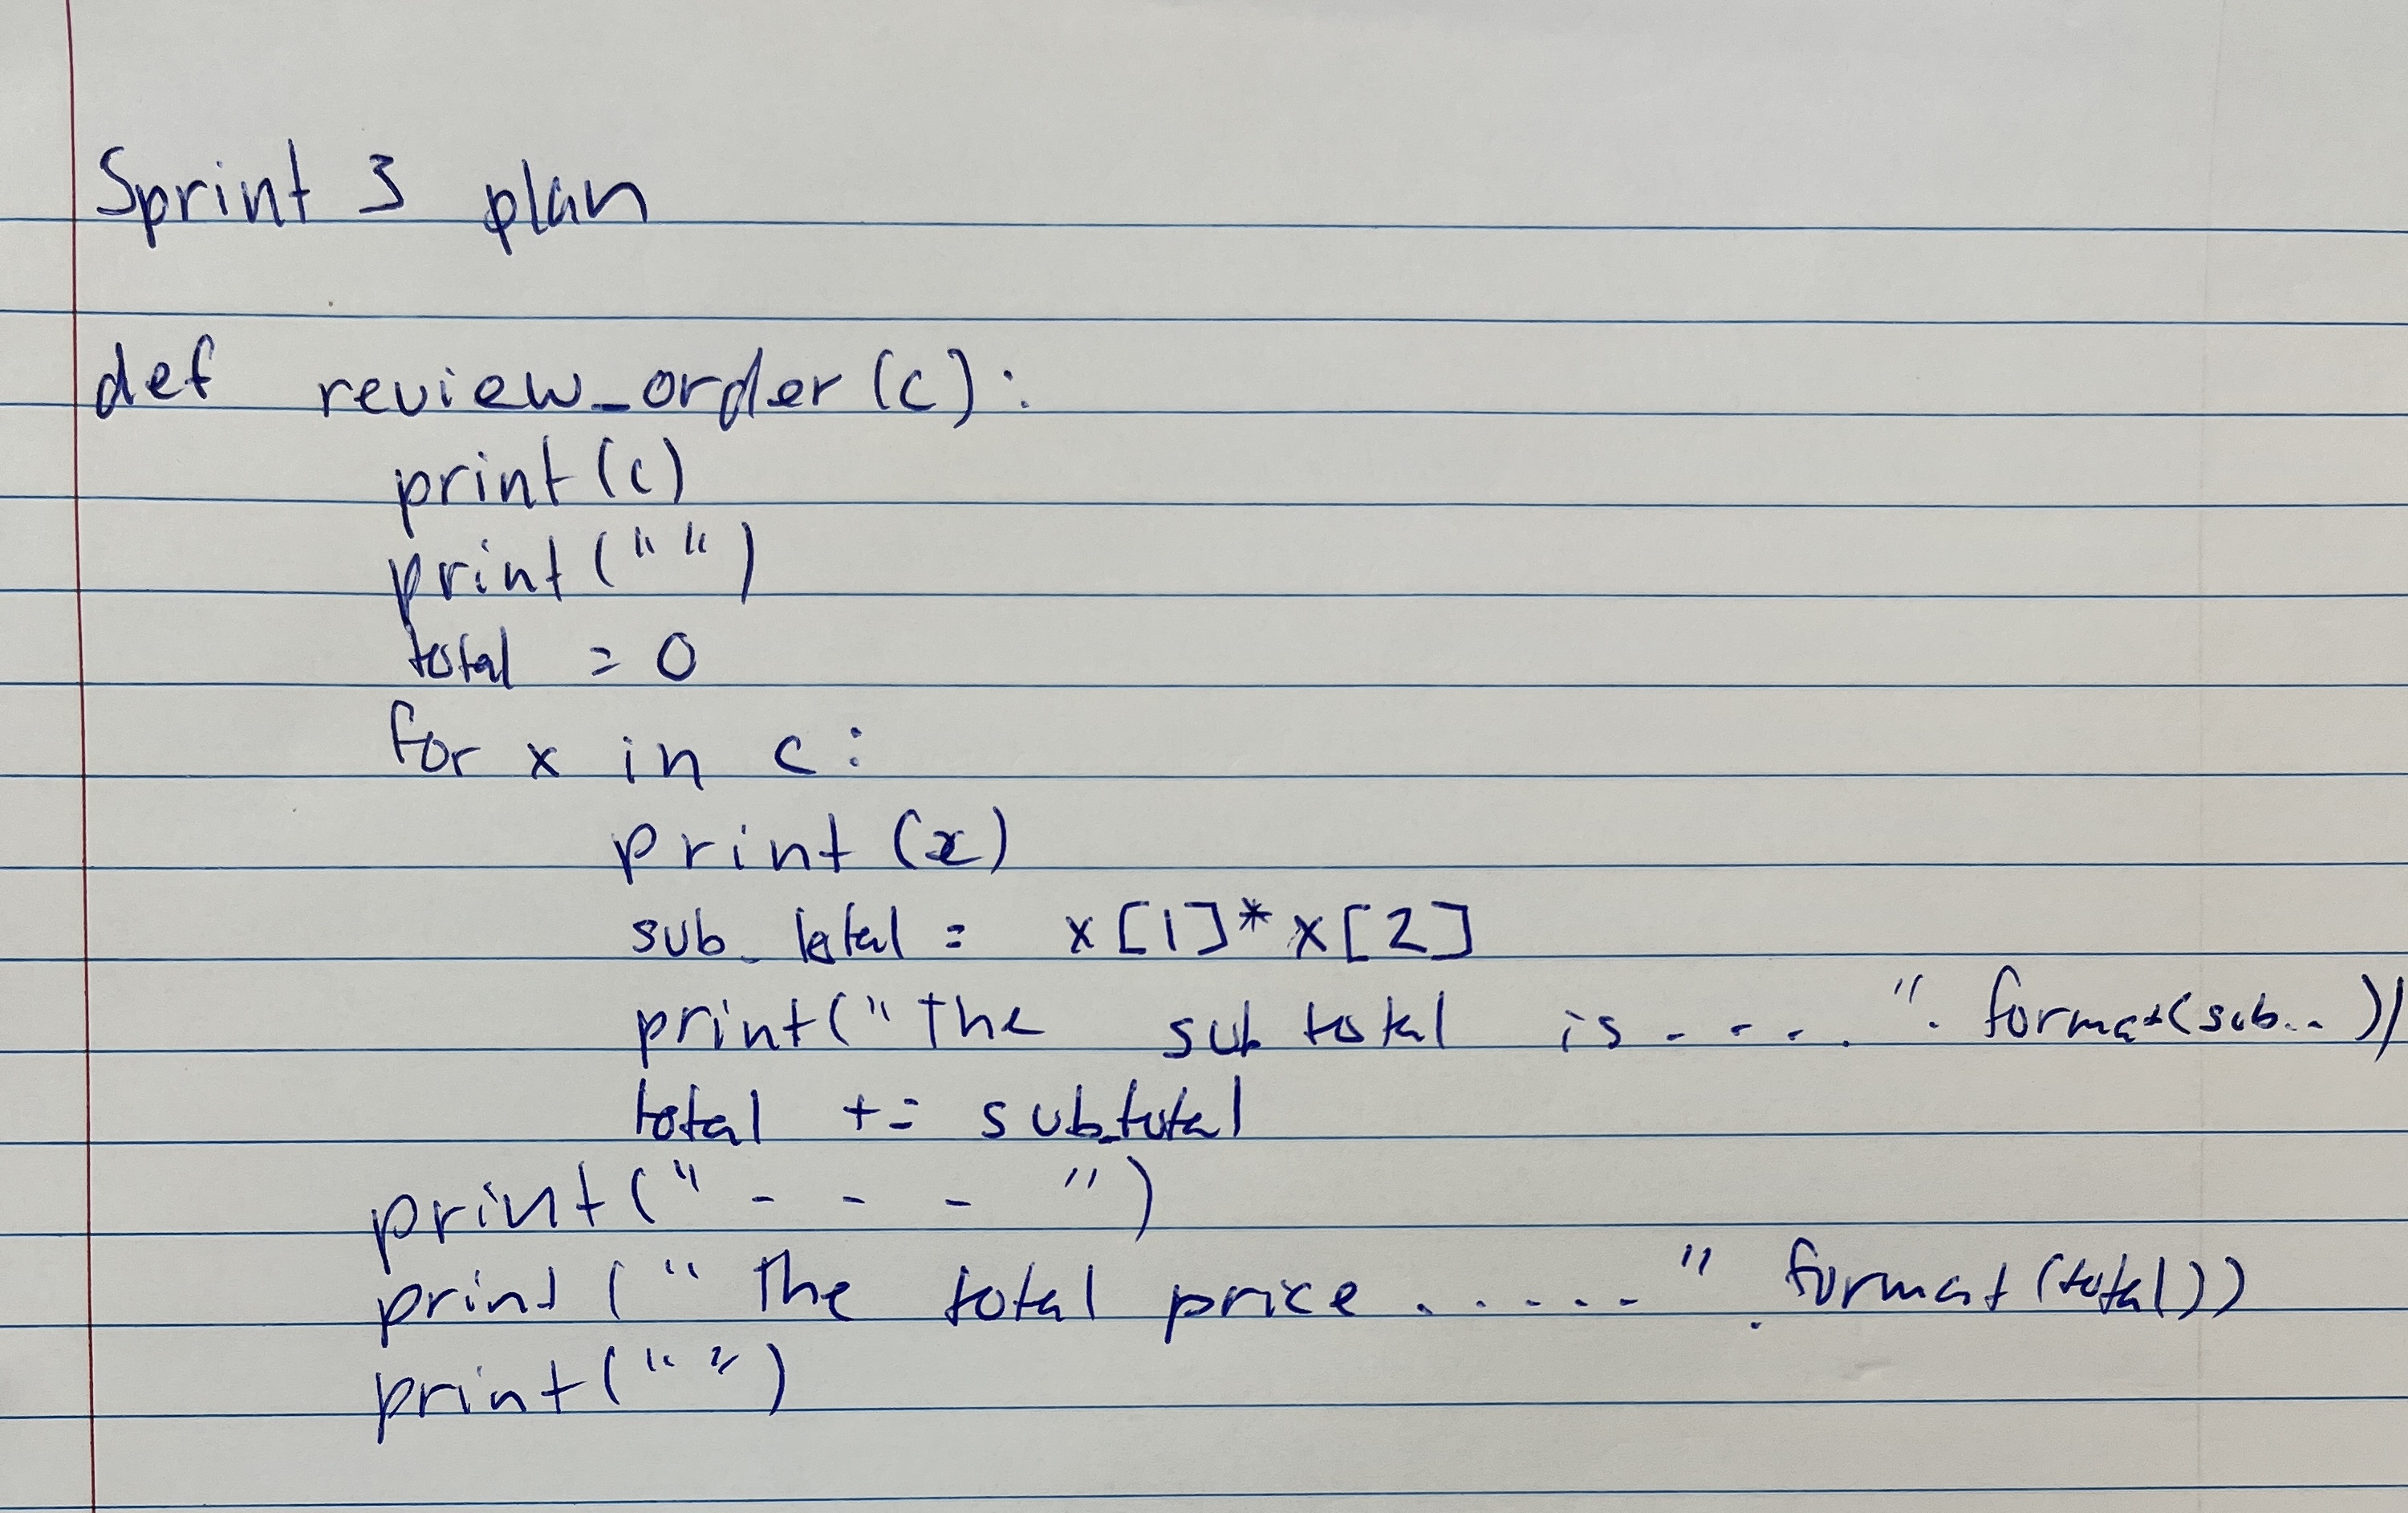 Sprint 3 plan
def review_order (c):
print (c)
print (" ")
total = 0
for x in c:
print (x)
sub_total = x[1]* x[2]
print (" The sub total is . - - . . ". format(sub.. ))
total += sub_total
print (" - - - ")
print (" The total price . . . . . ". format (total))
print (" ")